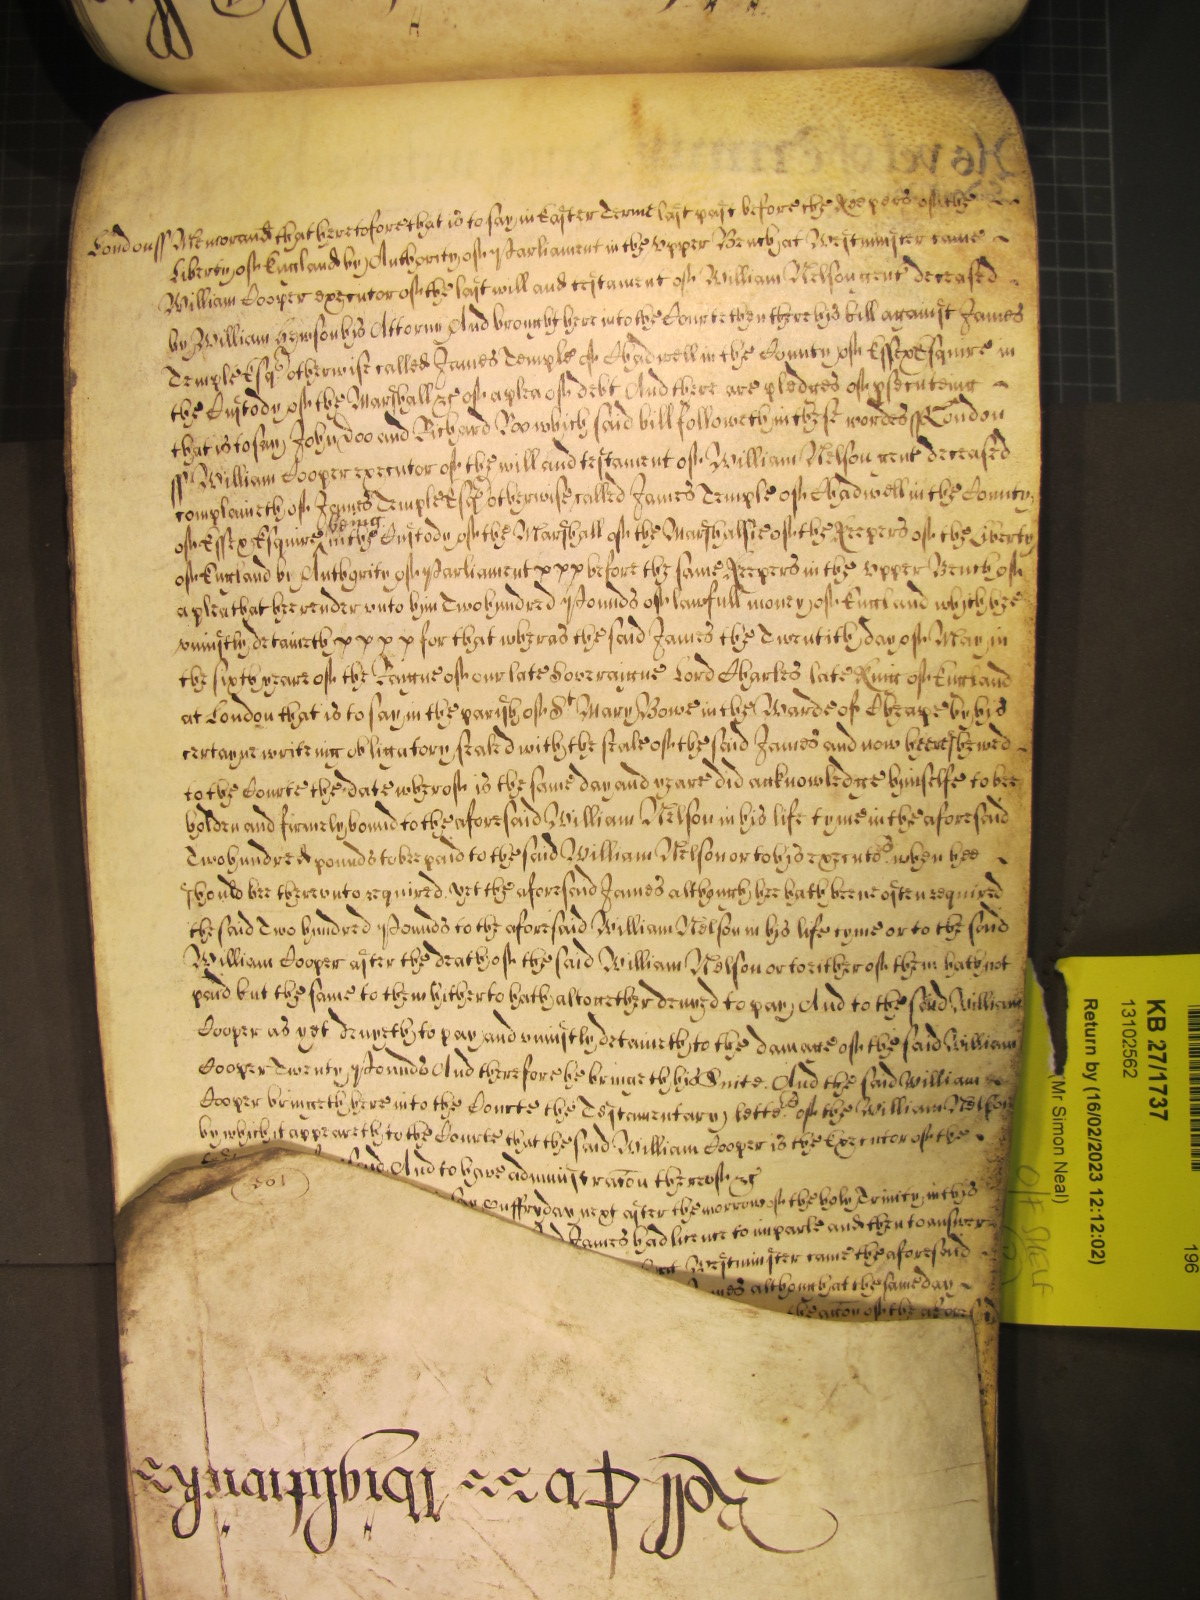 London ss Memorand that heretofore that is to say in Easter Terme last past before the Keepers of the
Liberty of England by Authority of Parliament in the Upper Bench at Westminster came
William Cooper executor of the last will and testament of William Nelson gent deceased
by William Hewson his Attorny And brought here into the Courte then there his bill against James
Temple Esqr otherwise called James Temple of Chadwell in the County of Essex Esquire in
the Custody of the Marshall &c of a plea of debt And there are pledges of psecuteing
that is to say John Doo and Richard Roo which said bill followeth in these wordes ss London
ss William Cooper executor of the will and testament of William Nelson gent deceased
complaineth of James Temple Esqr otherwise called James Temple of Chadwell in the County
of Essex Esquire being in the Custody of the Marshall of the Marshalsie of the Keepers of the Liberty
of England by Authority of Parliament x x x before the same Keepers in the Upper Bench of
a plea that hee render unto him Two hundred Pounds of lawfull money of England which hee
uniustly detaineth x x x x for that wheras the said James the Twentith day of May in
the sixth yeare of the Raigne of our late Soveraigne Lord Charles late King of England
at London that is to say in the parish of St Mary Bowe in the Warde of Cheape by his
certayne writeing obligatory sealed with the seale of the said James and now heere shewed
to the Courte the date wherof is the same day and yeare did acknowledge himselfe to bee
holden and firmely bound to the aforesaid William Nelson in his life tyme in the aforesaid
Two hundred pounds to bee paid to the said William Nelson or to his executors when hee
should bee thereunto required. yet the aforesaid James although hee hath beene often required
the said Two hundred Pounds to the aforesaid William Nelson in his life tyme or to the said
William Cooper after the death of the said William Nelson or to either of them hath not
paid but the same to them hitherto hath altogether denyed to pay And to the said William
Cooper as yet denyeth to pay and uniustly detaineth to the damage of the said William
Cooper Twenty Pounds And therefore he bringeth his Suite. And the said William
Cooper bringeth here into the Courte the Testamentary letters of the William Nelson
by which it appeareth to the Courte that the said William Cooper is the Executor of the
said And to have administracon thereof &c
uppon ffryday next after the morrow of the holy Trinity in this
James had licence to imparle and then to answer
at Westminster came the aforesaid
James although at the same day
the accon of the aforesaid
501
Roll
Wightwicke
KB 27/1737
13102562
Return by (16/02/2023 12:12:02)
(Mr Simon Neal)
196
O/F SHELF